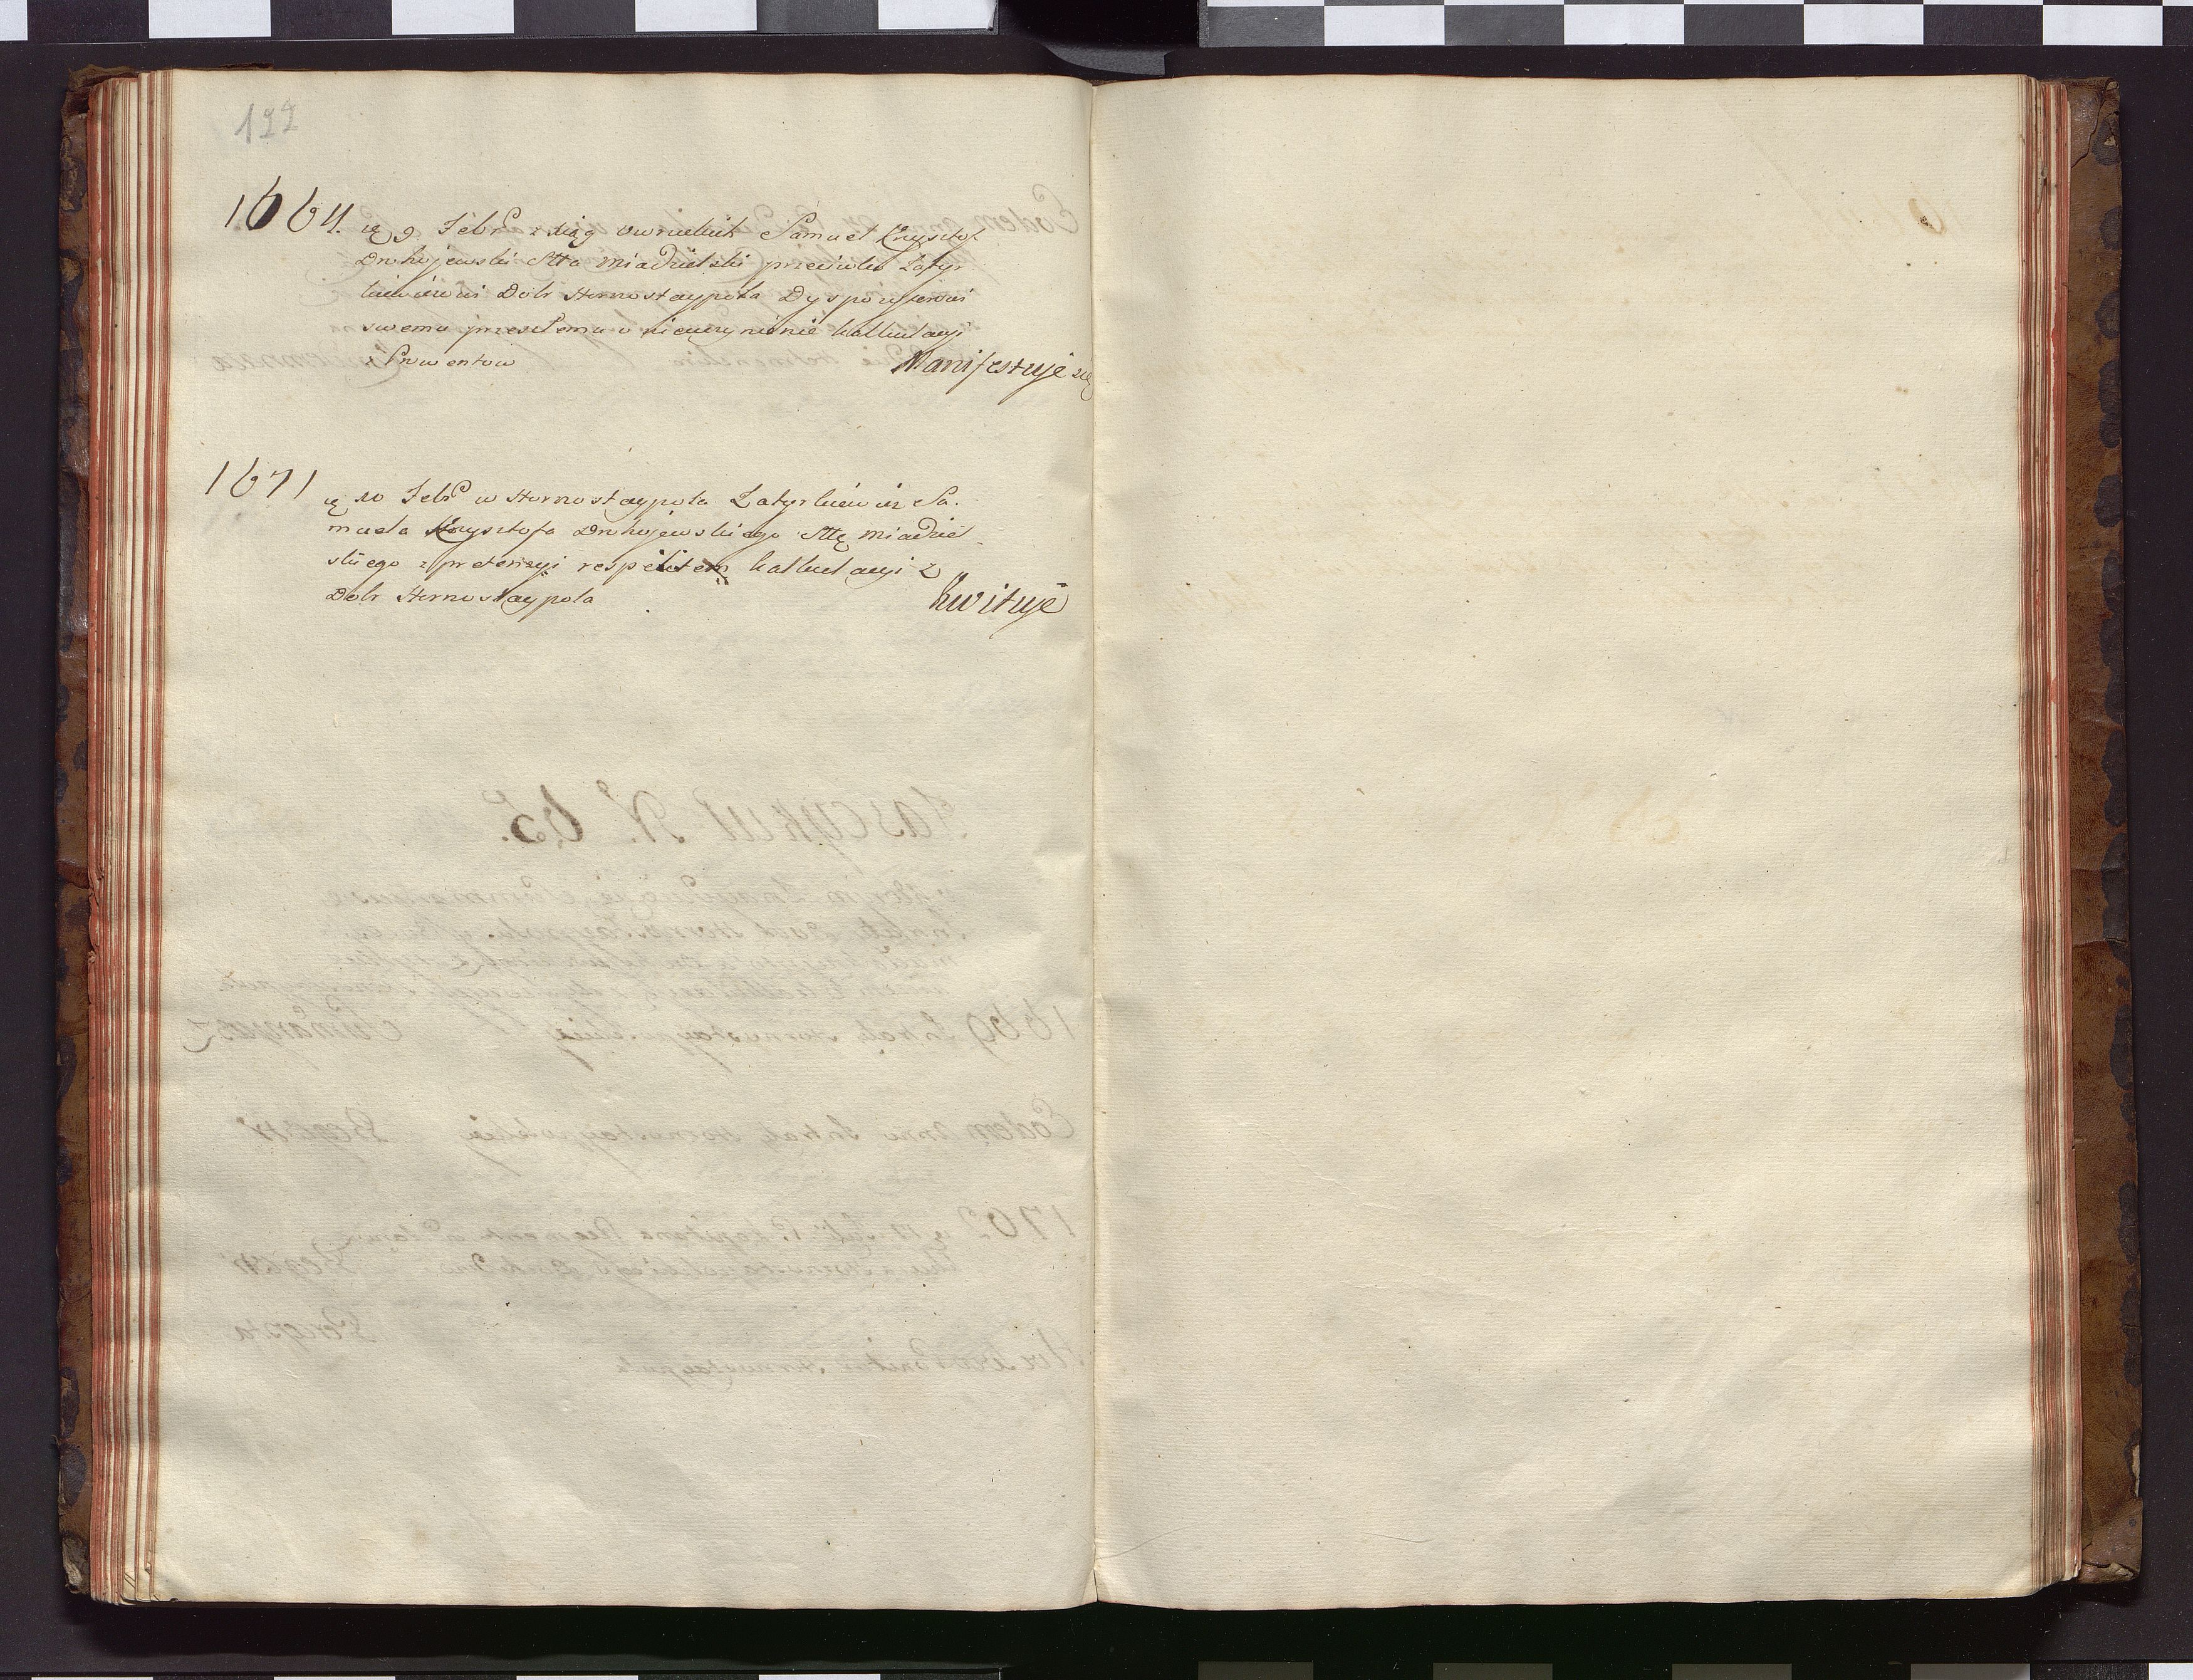 122
1664. ię 9 Febr z Xiąg Owruckich Samuel Krzysztof
Drohojewski Stta Miadzielski przeciwko Łatyr
kiewiczowi Dobr Hornostaypola Dyspozytorowi
swemu przeszłemu o nieuczynienie kalkulacyi
z Prowentow Manifestuje się
1671 ię 10 Febr w Hornostaypolu Łatyrkiewicz Sa.
muela Krzysztofa Drohojewskiego Sttę Miadziel
skiego z pretensyi respektem kalkulacyi z
Dobr Hornostaypola Kwituje